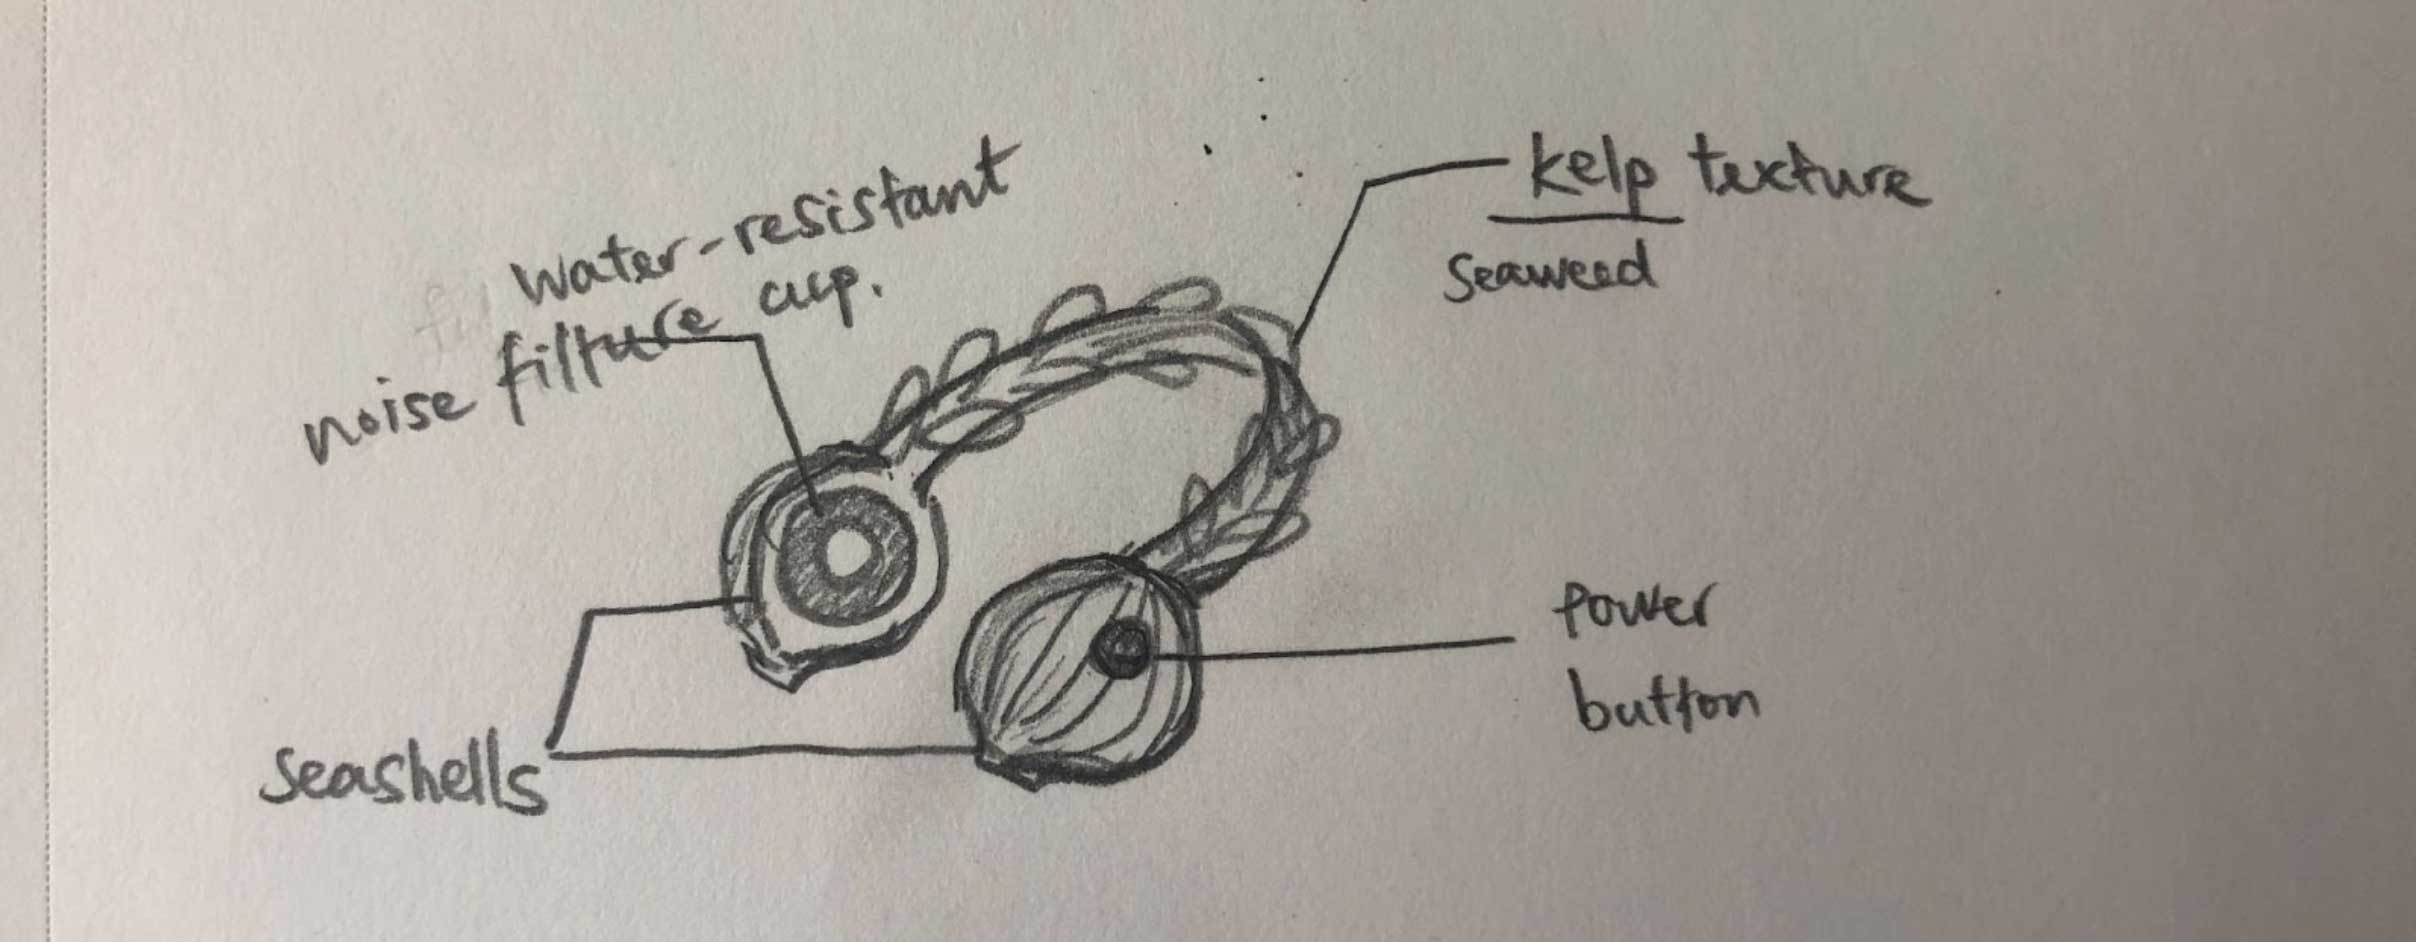 water-resistant
noise filture cup.
kelp texture
seaweed
power
button
seashells